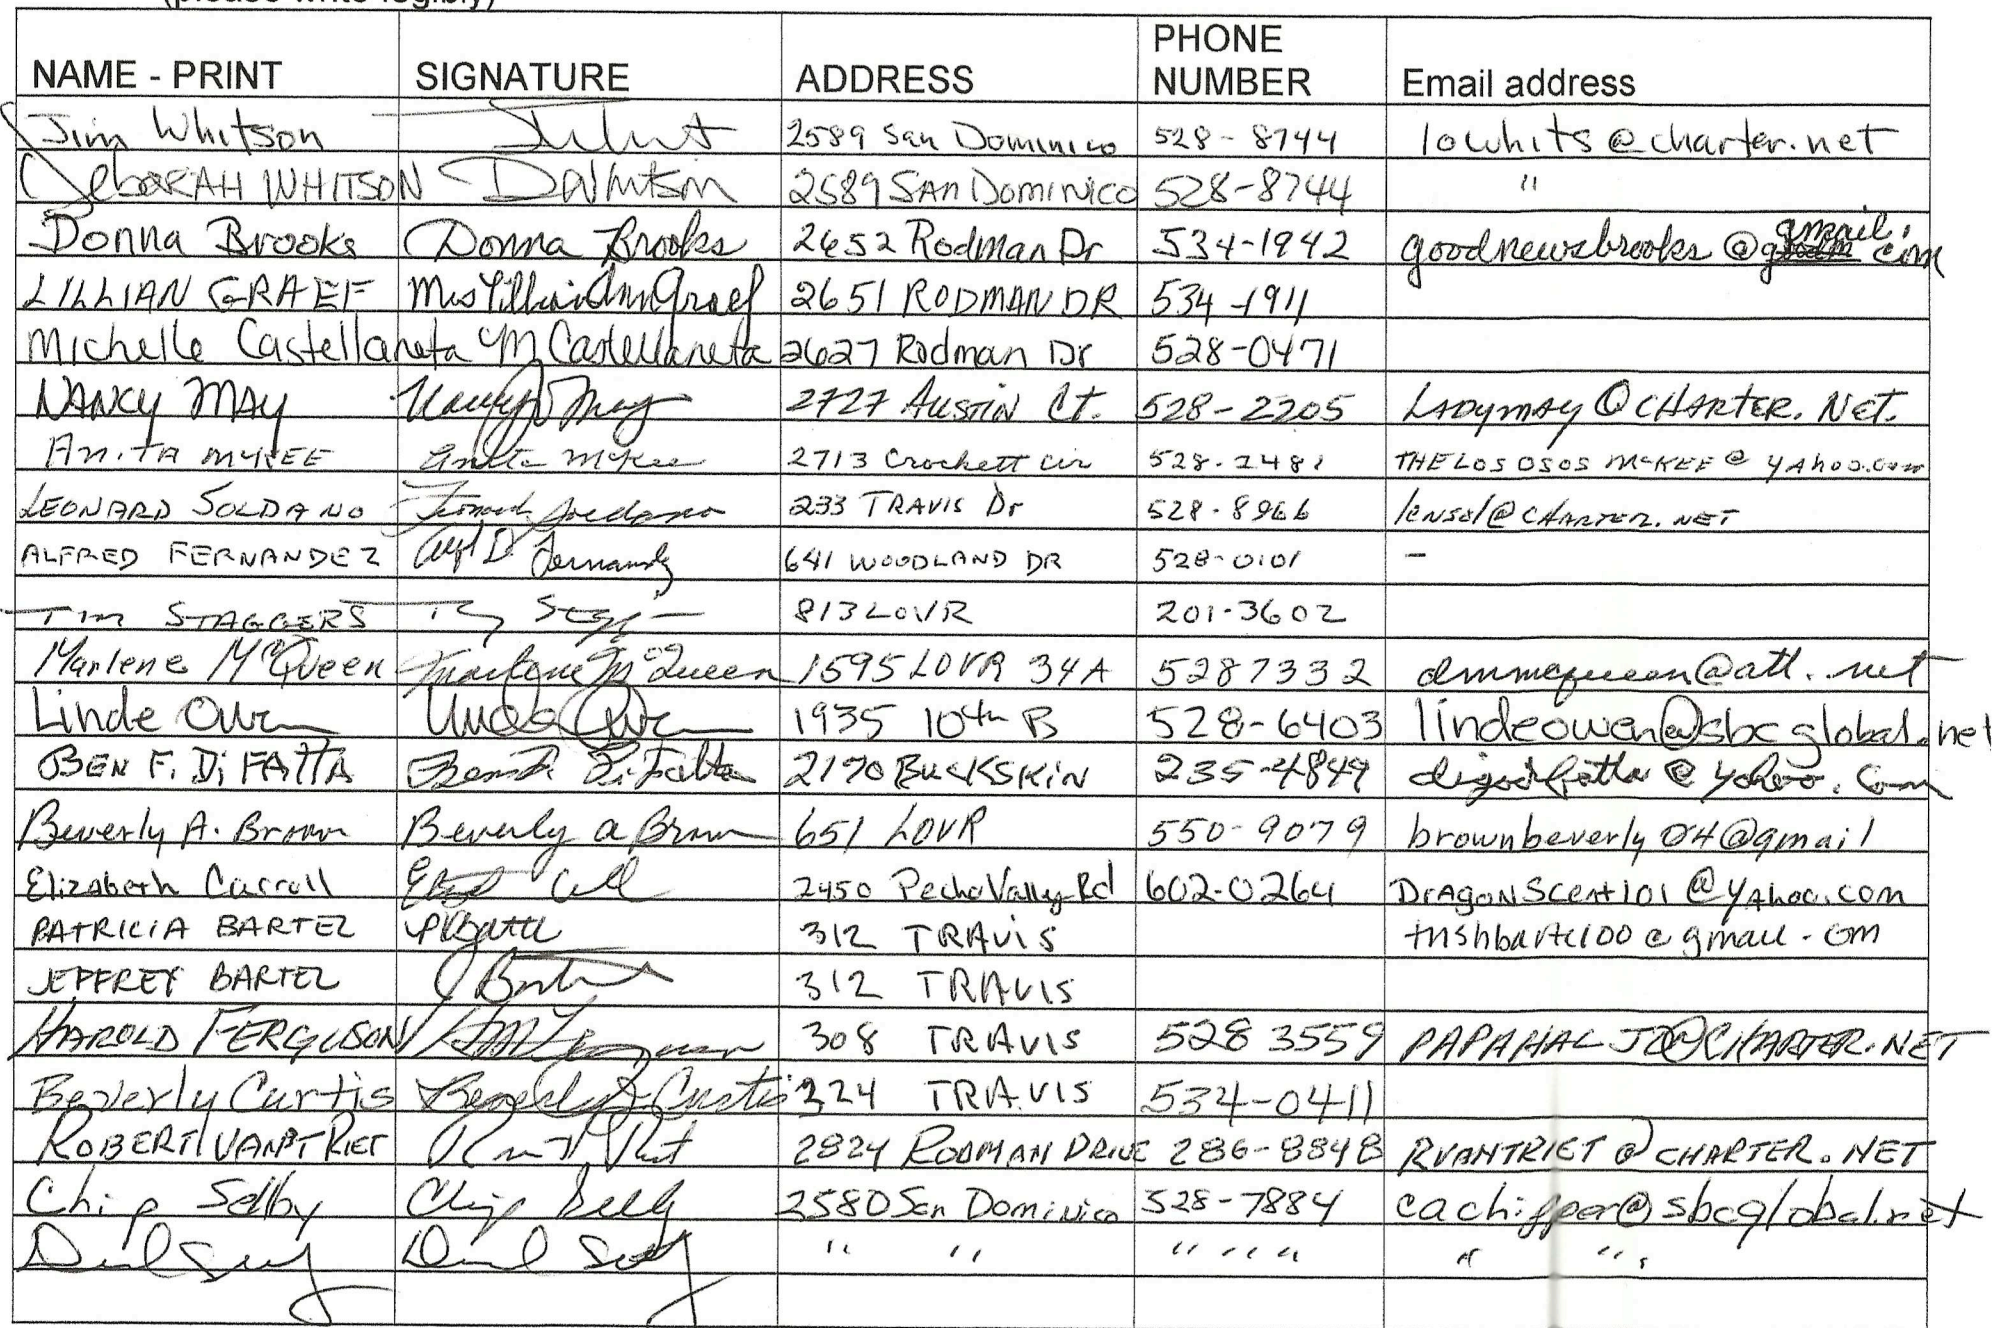 (please write legibly)
NAME - PRINT SIGNATURE ADDRESS PHONE NUMBER Email address
Jim Whitson 2589 San Dominico 528-8744 lowhits@charter.net
DeboRAH WHITSON DWhitson 2589 SAN DOMINICO 528-8744 "
Donna Brooks Donna Brooks 2652 Rodman Dr 534-1942 goodnewsbrooks@gmail.com
LILLIAN GRAEF Mrs Lillian Ann Graef 2651 RODMAN DR 534-1911
Michelle Castellaneta M Castellaneta 2627 Rodman Dr 528-0471
NANCY MAY Nancy May 2727 AUSTIN Ct. 528-2205 LADYMAY@CHARTER.NET.
ANITA McKEE Anita McKee 2713 Crockett cir 528-2481 THELOSOSOSMcKEE@YAhoo.com
LEONARD SOLDANO Leonard Soldano 233 TRAVIS Dr 528-8966 lensol@CHARTER.NET
ALFRED FERNANDEZ Alf D. Fernandez 641 WOODLAND DR 528-0101 -
TIM STAGGERS 813 LOVR 201-3602
Marlene McQueen Marlene McQueen 1595 LOVR 34A 5287332 dmmcqueen@att.net
Linde Owen Linde Owen 1935 10th B 528-6403 lindeowen@sbcglobal.net
BEN F. Di FATTA Ben F. Di Fatta 2170 BUCKSKIN 235-4849 @yahoo.com
Beverly A. Brown Beverly a Brown 651 LOVR 550-9079 brownbeverly04@gmail
Elizabeth Carroll 2450 Pecho Valley Rd 602-0264 DrAgoNScent101@YAhoo.com
PATRICIA BARTEL 312 TRAVIS trishbartel00@gmail.com
JEFFREY BARTEL 312 TRAVIS
HAROLD FERGUSON HM Ferguson 308 TRAVIS 528 3559 PAPAHALJO@CHARTER.NET
Beverly Curtis Beverly Curtis 324 TRAVIS 534-0411
ROBERT VAN'T RIET 2824 RODMAN DRIVE 286-8848 RVANTRIET@CHARTER.NET
Chip Selby Chip Selby 2580 San Dominico 528-7884 cachipper@sbcglobal.net
" " " " " " "